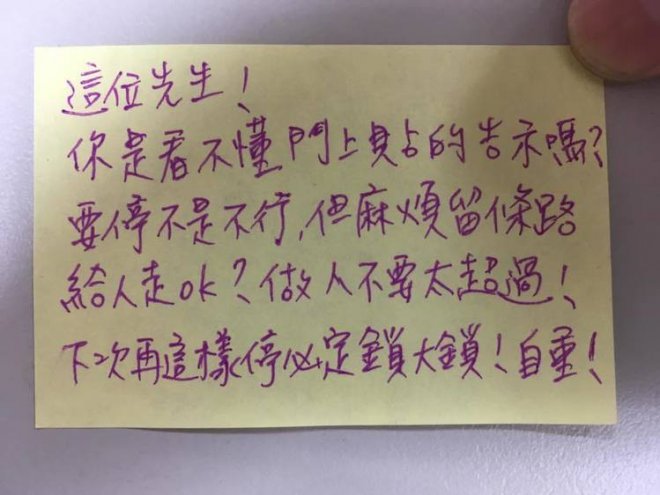 這位先生!
你是看不懂門上貼的告示嗎?
要停不是不行,但麻煩留條路
給人走ok?做人不要太超過!
下次再這樣停必定鎖大鎖!自重!